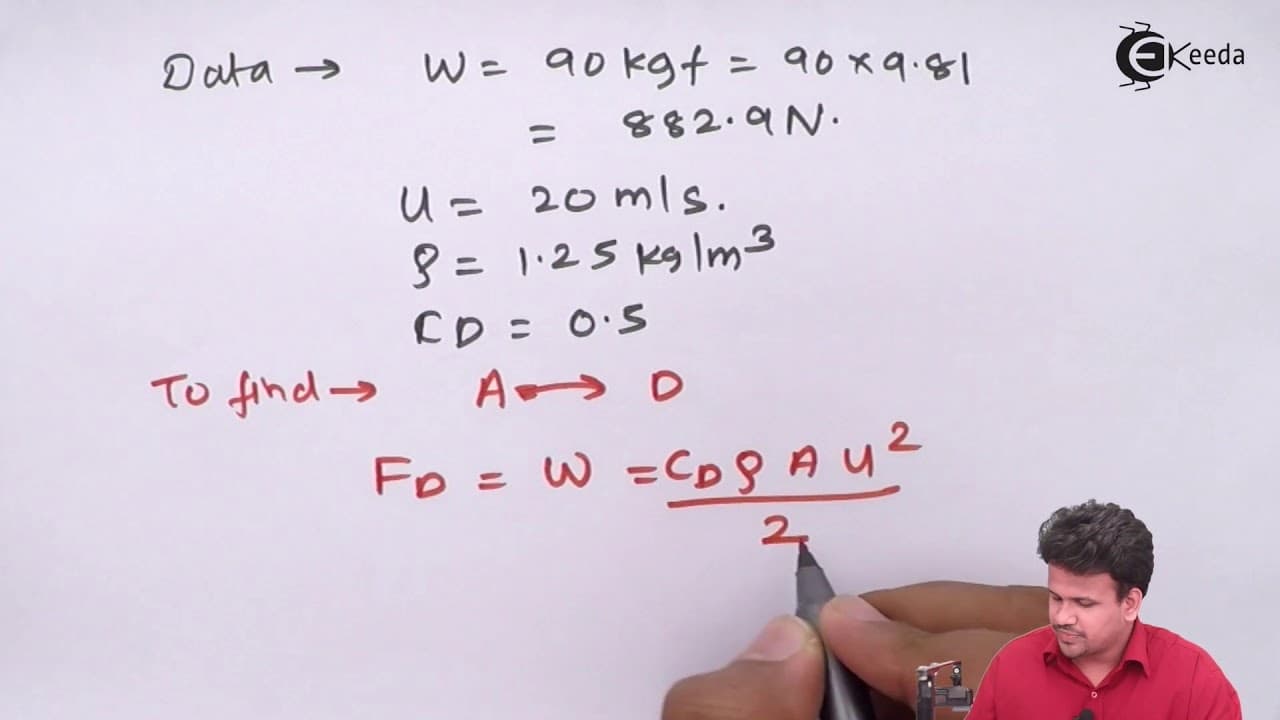 Data → W = 90 kgf = 90 × 9.81
= 882.9 N.
U = 20 m/s.
ρ = 1.25 kg/m³
CD = 0.5
To find → A ⟷ D
FD = W = CD ρ A U²
2
EKeeda